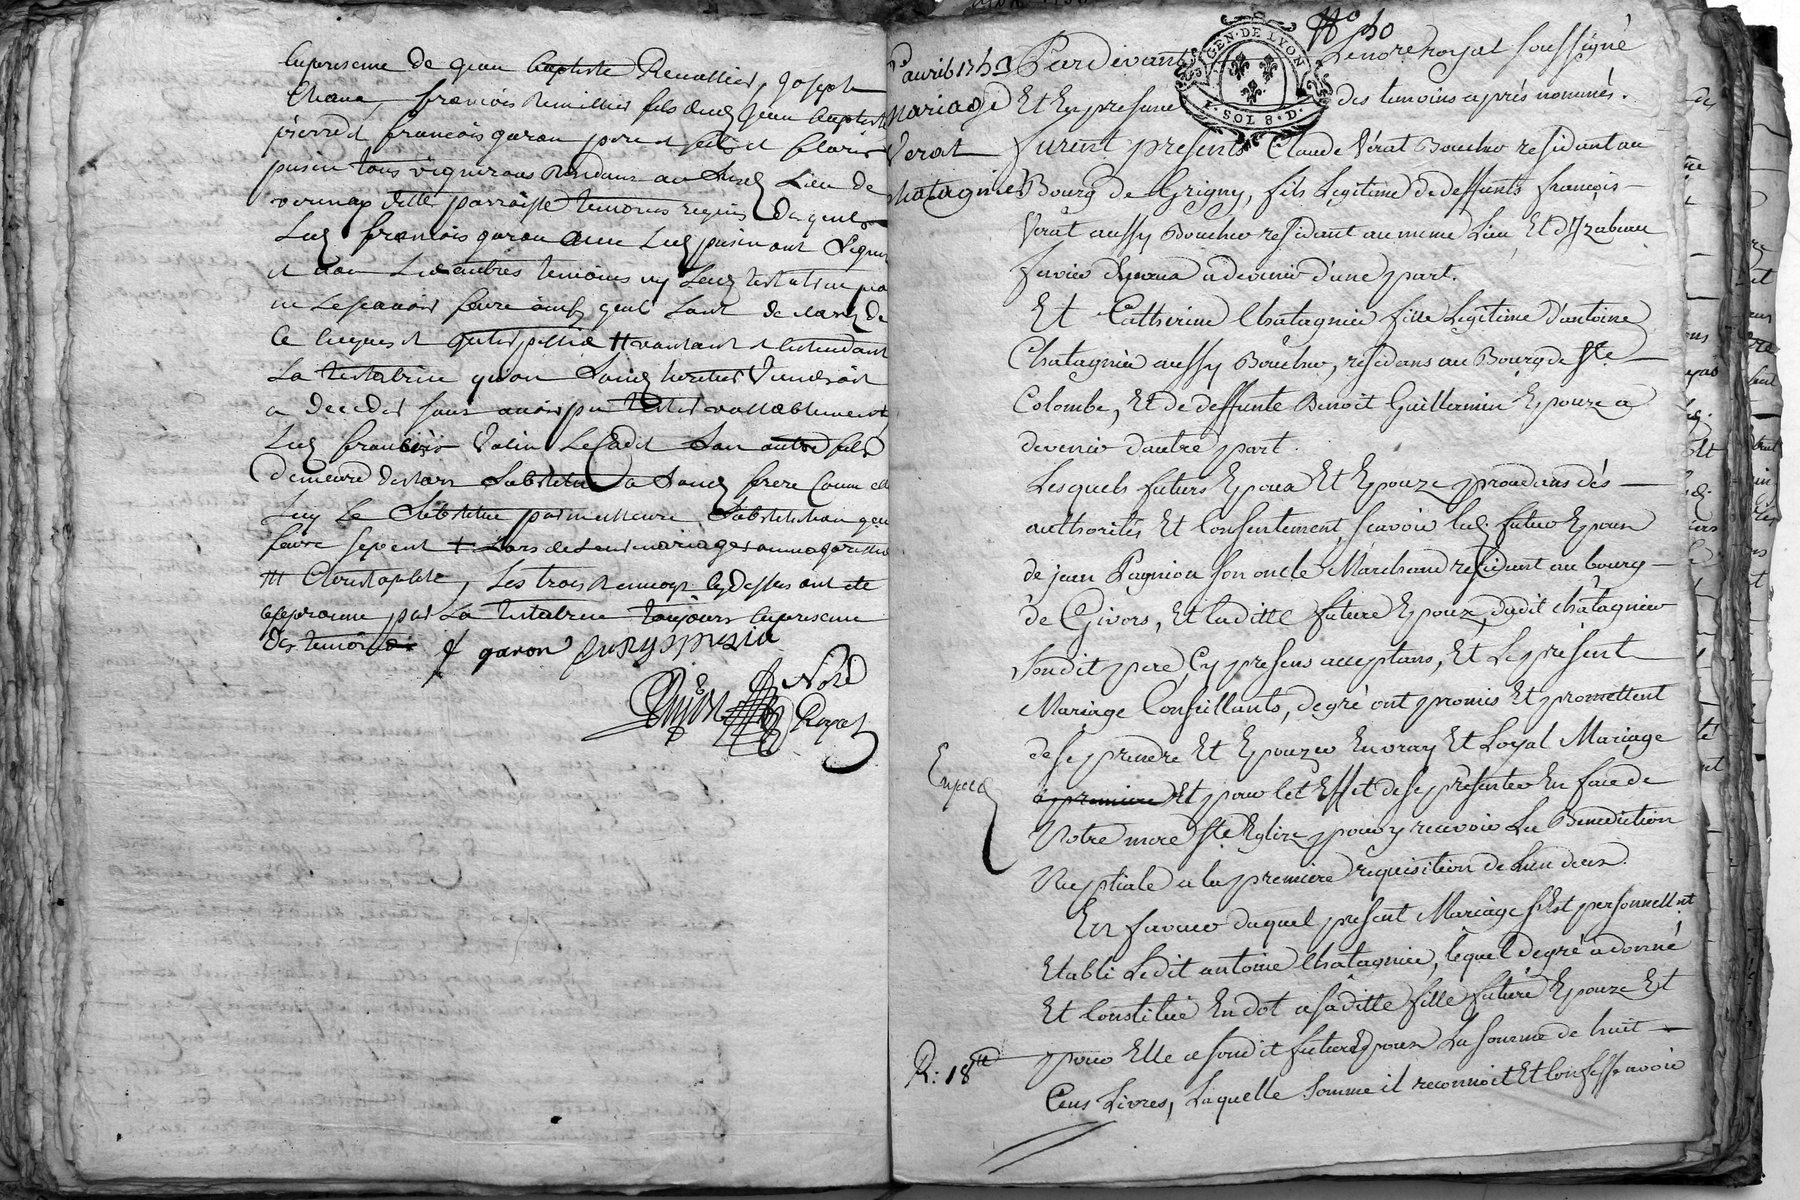 En presence de jean baptiste Renallier, Joseph
Chana, francois Remillier fils dud. Jean baptiste
pierre et francois garon pere et fils et
pusin tous vignerons Residans au Lieu de
vernay ditte parroisse temoins requis desquels
Led. francois garon avec Led. pusin ont Signé
et non Les autres temoins ny Lad. testatrice pour
ne Le scavoir faire ainsy quils Lont declaré de
ce enquis et
La testatrice quou Sond. heritier Viendroit
a deceder sans avoir pu tester vallablement
Led. francois Valin Le Cadet Son autre fils
demeure des lors Substitué a Sond. frere Comme elle
Luy le Substitue par meilleure Substitution que
faire se peut + Lors de Leur mariage ou majorité
Christophle, Les trois Renvoys cy dessus ont ete
approuvé par La testatrice toujours en presence
des temoins garon pusin
Nore
Royal
No 50
GEN. DE LYON
1. SOL 8. D.
avril 1759
Mariage
Verat
Chatagnier
Pardevant Le nore royal soussigné
Et En presence des temoins après nommés.
furent presents Claude Vérat Boucher residant au
Bourg de Grigny, fils Legitime de deffunts francois
Verat aussy Boucher residant au meme Lieu, Et d'Yzabeau
fevier Epoux a devenir d'une part.
Et Catherine Chatagnier fille Legitime d'antoine
Chatagnier aussy Boucher, residans au Bourg de Ste
Colombe, Et de deffunte Benoit Guillermin Epouze a
devenir dautre part.
Lesquels futurs Epoux Et Epouze procedans dés
authorités Et Consentement, scavoir led. futur Epoux
de jean Pagnion son oncle Marchand residant au bourg
de Givors, Et laditte future Epouze, dudit chatagnier
Sondit pere, Cy presens acceptans, Et Le present
Mariage Conseillants, de gré ont promis Et promettent
de se prendre Et Epouzer En vray Et Loyal Mariage
Et pour cet Effet de se presenter En face de
Notre mere Ste Eglize pour y recevoir La Benediction
Nuptiale a la premiere requisition de Lun deux.
En faveur duquel present Mariage s'Est personnellent
Etabli Ledit antoine Chatagnier, lequel de gré a donné
Et Constitué En dot a saditte fille future Epouze Et
R: 18tt
pour Elle a sondit futur Epoux La somme de huit
Cens Livres, Laquelle Somme il reconnoit Et Confesse avoir